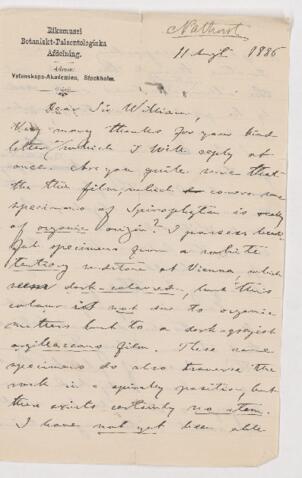 Nathorst
Riksmusei
Botaniskt-Paleontologiska
Afdelning.
Adress:
Vetenskaps-Akademien, Stockholm.
11 Augt 1886
Dear Sir William,
Very many thanks for your kind
letter, which I will reply at
once. Are you quite sure that
the thin film, which covers some
specimens of Spirophyton is really
of organic origin? I possess
specimens from a white
tertiary sandstone at Vienna, which
seem dark-coloured, but this
colour is not due to organic
matters but to a dark-greyish
argillaceous film. These same
specimens do also traverse the
rock in a spirally position, but
there exists certainly no stem.
I have not yet been able